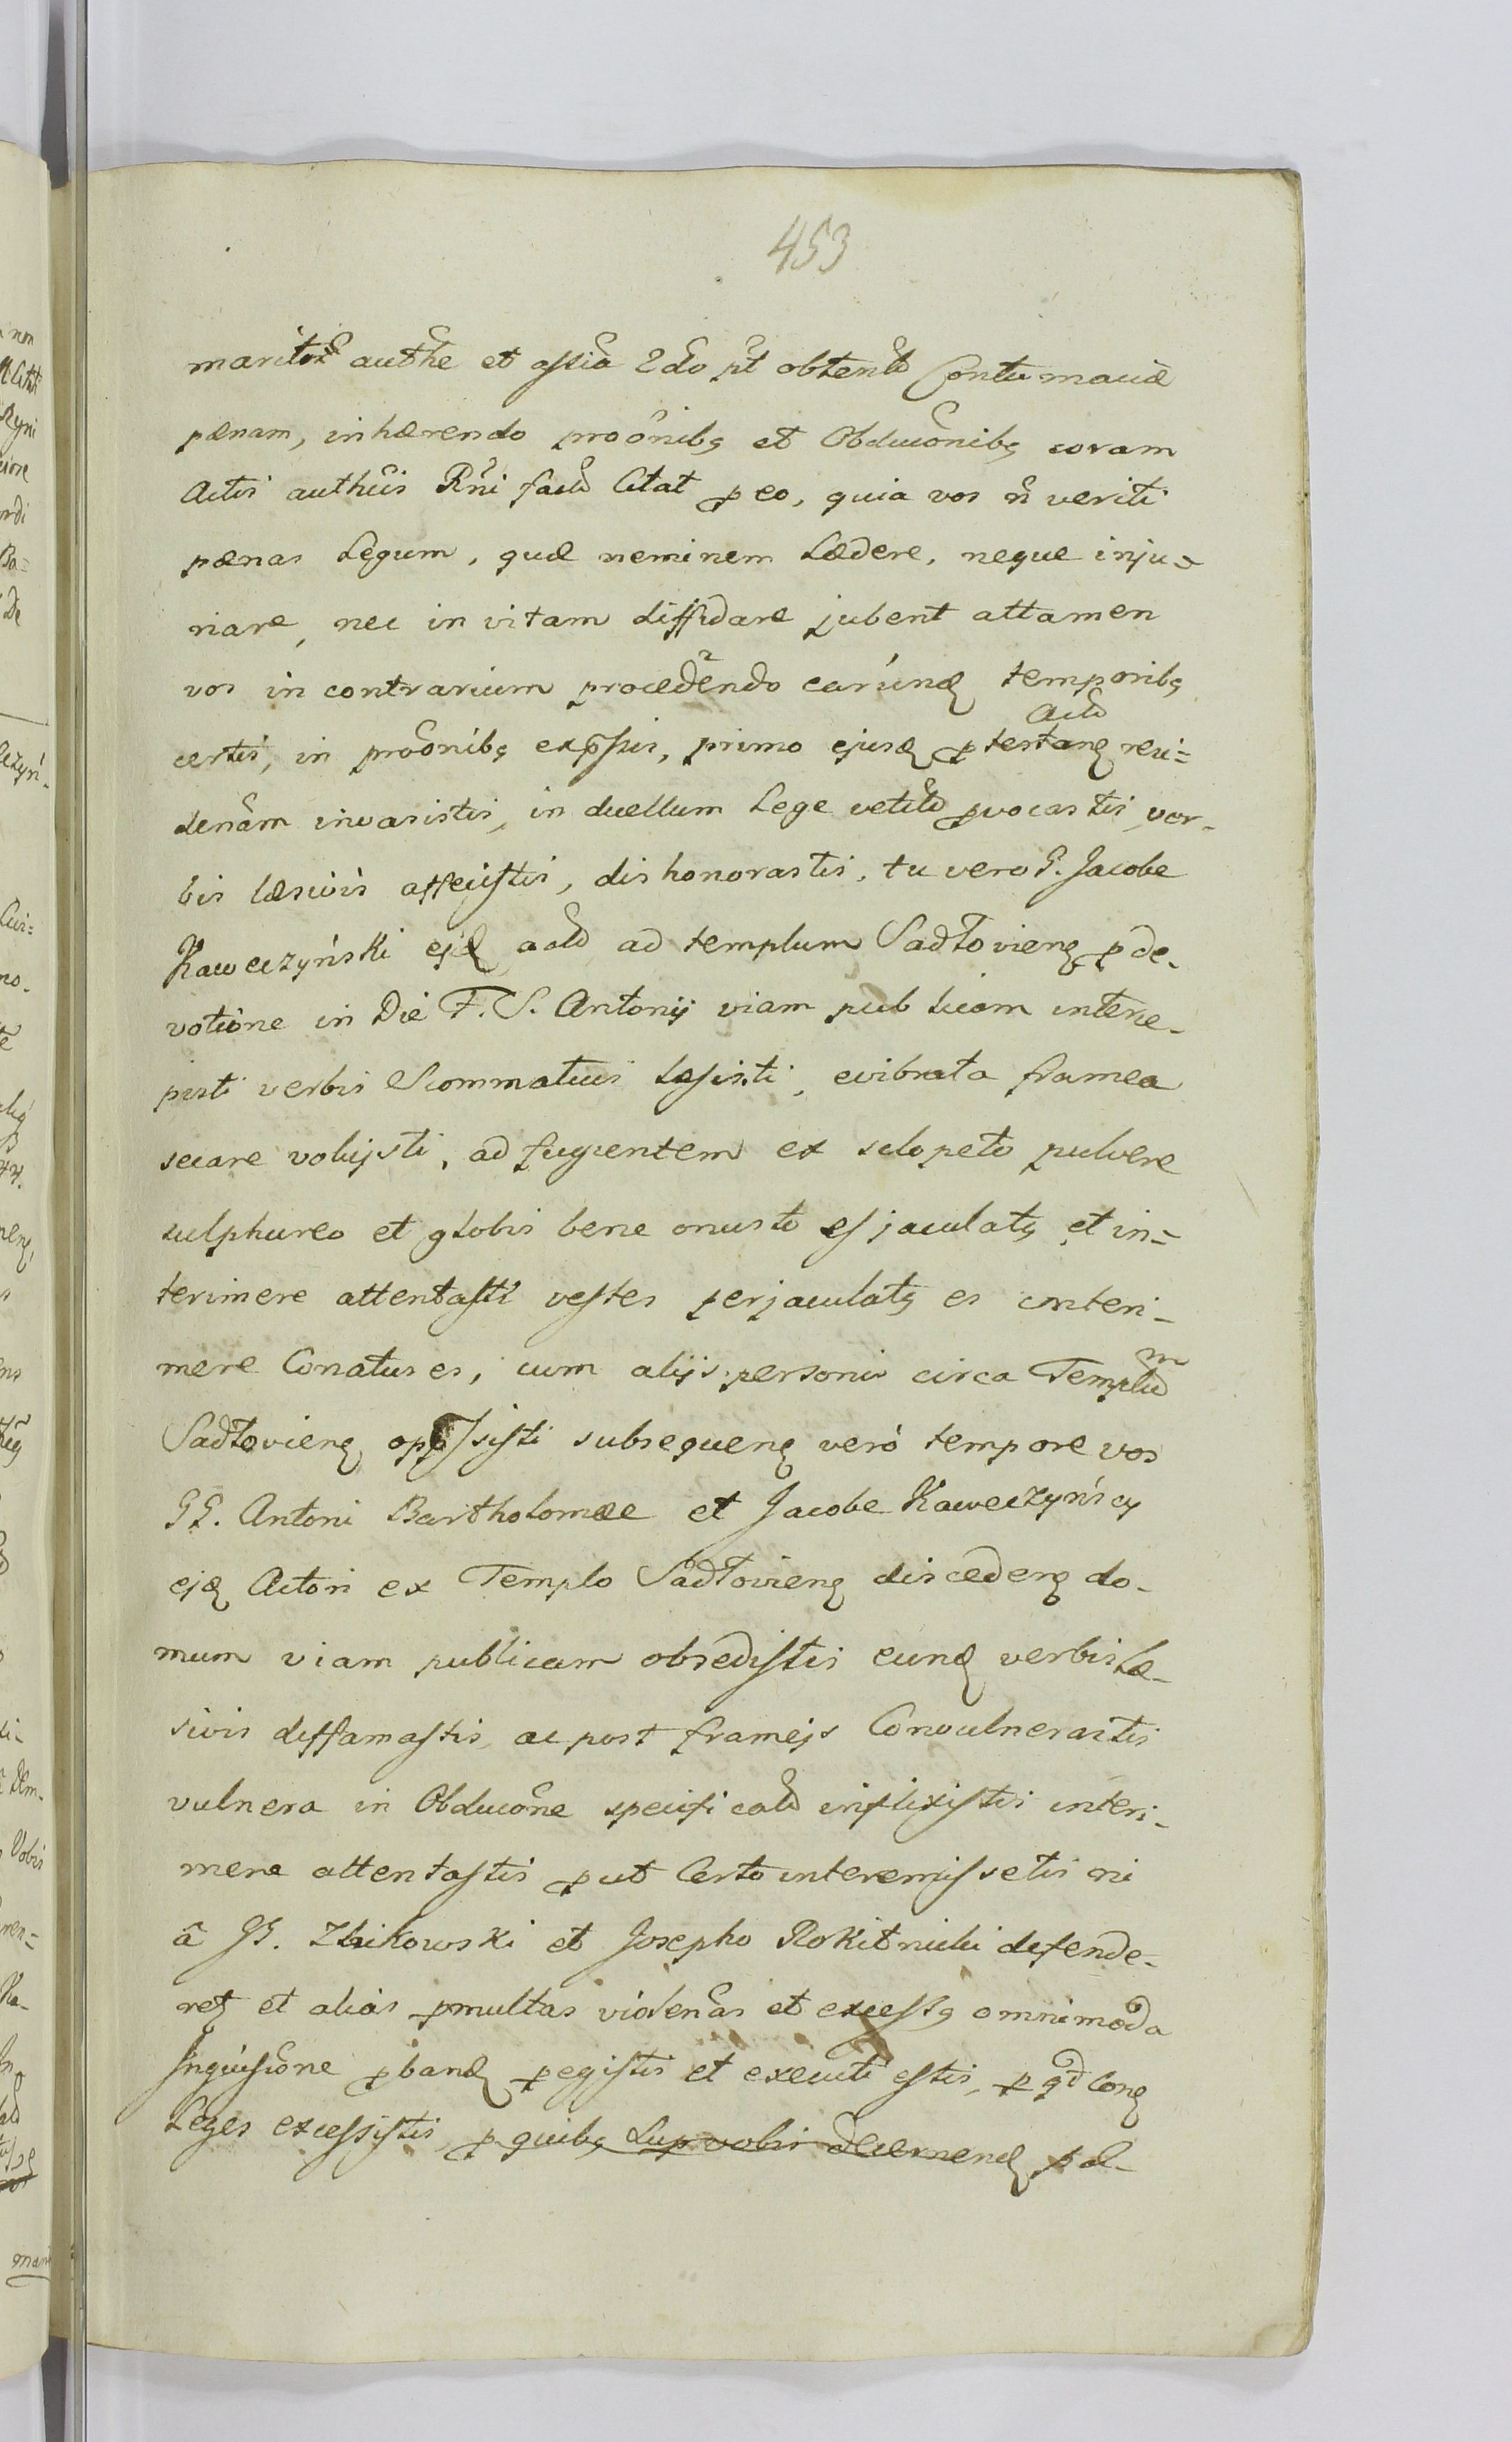 453
maritor̃ auth̃e et assiã 2do pt̃ obtent̃ Contumaciæ
pænam, inhærendo proõnibꝫ et Obducõnibꝫ coram
Actis auth̃cis Rñi fact̃ Citat ꝓ eo, quia vos ñ veriti
pænas Legum, quæ neminem Lædere, neque inju=
riare, nec in vitam diffidare jubent attamen
vos in contrarium procedẽndo earúnd temporibꝫ
certis, in proõnibꝫ exp̃ssis, primo ejusd ꝓtestang Act̃ resi=
denãm invasistis, in duellum Lege vetit̃ ꝓvocastis, ver-
bis læsivis affecistis, dishonorastis, tu vero G. Jacobe
Kaweczyński ejd act̃ ad templum Sadłovieng ꝓ de-
votione in Die F. S. Antonij viam publicam interce-
pisti verbis Scommaticis læsisti, evibrata framea
secare volujsti, ad fugientem ex sclopeto pulvere
sulphureo et globis bene onusto ejaculatꝫ et in=
terimere attentasti vestes perjaculatꝫ es interi-
mere Conatus es, cum alijs personis circa Templum
Sadłovieng oppssisti subsequeng verò tempore vos
GG. Antoni Bartholomæe et Jacobe Kaweczyńscy
ejd Actori ex Templo Sadłovieng discedeng do-
mum viam publicam obsedistis eund verbis læ-
sivis diffamastis, ac post framejs Convulnerastis
vulnera in Obducõne specificat̃ inflixistis interi-
mere attentastis ꝓut Certo interemissetis ni
â GG. Zbikowski et Josepho Rokitnicki defende-
ret et aliàs ꝑmultas violenãs et excessꝫ omnimoda
Inquisiõne ꝓband ꝑegistis et executi estis, ꝑ qd Cong
Leges excessistis, ꝓ quibꝫ Lup vobis decernend pæ-